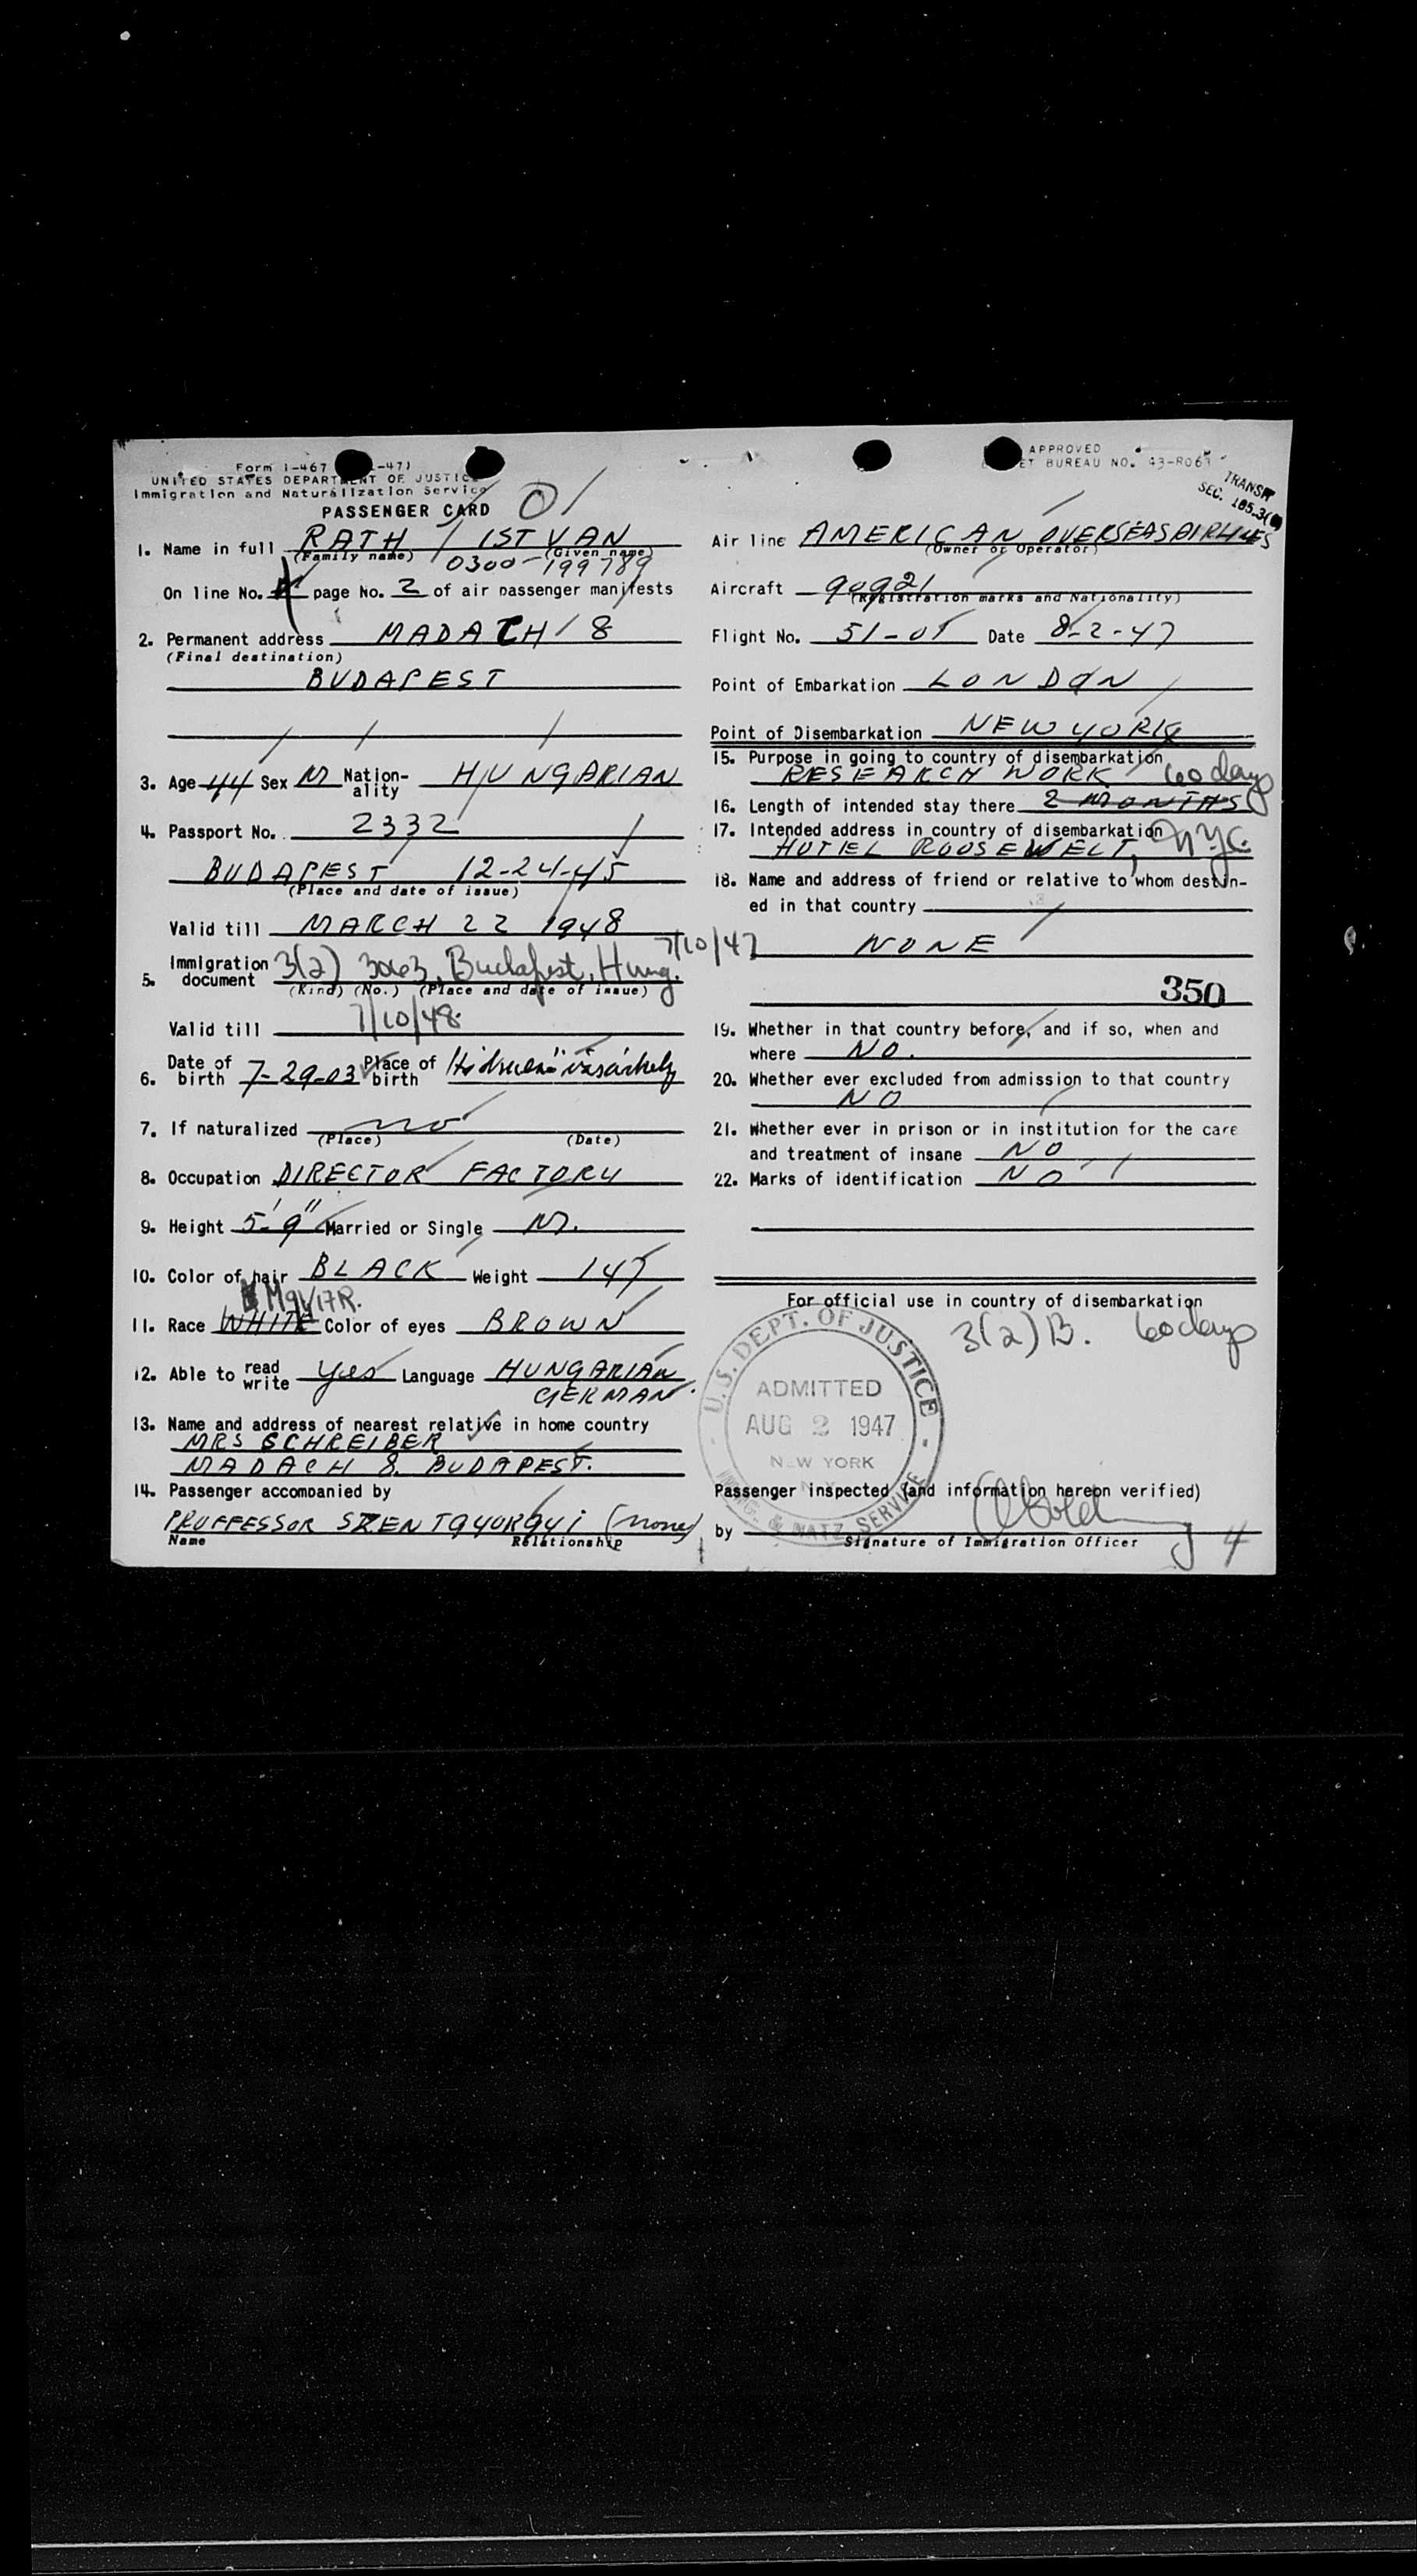 Form I-467 -47)
UNITED STATES DEPARTMENT OF JUSTICE
Immigration and Naturalization Service
PASSENGER CARD
1. Name in full RATH / ISTVAN
(Family name) (Given name)
0300-199789
On line No. page No. 2 of air passenger manifests
2. Permanent address MADATCH 8
(Final destination)
BUDAPEST
3. Age 44 Sex M Nation-ality HUNGARIAN
4. Passport No. 2332
BUDAPEST 12-24-45
(Place and date of issue)
Valid till MARCH 22 1948
5. Immigration document 3(2) 3063, Budapest, Hung. 7/10/47
(Kind) (No.) (Place and date of issue)
Valid till 7/10/48
6. Date of birth 7-29-03 Place of birth
7. If naturalized no
(Place) (Date)
8. Occupation DIRECTOR FACTORY
9. Height 5'-9" Married or Single M.
10. Color of hair BLACK Weight 147
MAGYAR.
11. Race WHITE Color of eyes BROWN
12. Able to read write yes Language HUNGARIAN
GERMAN.
13. Name and address of nearest relative in home country
MRS SCHREIBER
MADACH 8. BUDAPEST.
14. Passenger accompanied by
PROFFESSOR SZENTGYORGYI (none)
Name Relationship
APPROVED
ET BUREAU NO. 43-R061
TRANSIT
SEC. 105.3(
Air line AMERICAN OVERSEAS AIRLINES
(Owner or Operator)
Aircraft 90921
(Registration marks and Nationality)
Flight No. 51-01 Date 8-2-47
Point of Embarkation LONDON
Point of Disembarkation NEW YORK
15. Purpose in going to country of disembarkation
RESEARCH WORK 60 days
16. Length of intended stay there 2 MONTHS
17. Intended address in country of disembarkation
HOTEL ROOSEWELT, N.Y.C.
18. Name and address of friend or relative to whom destin-
ed in that country
NONE
350
19. Whether in that country before, and if so, when and
where NO.
20. Whether ever excluded from admission to that country
NO
21. Whether ever in prison or in institution for the care
and treatment of insane NO
22. Marks of identification NO
For official use in country of disembarkation
3(2)B. 60 days
U.S. DEPT. OF JUSTICE
ADMITTED
AUG 2 1947
NEW YORK
N.Y.
IMMIG. & NATZ. SERVICE
Passenger inspected (and information hereon verified)
by
Signature of Immigration Officer
4